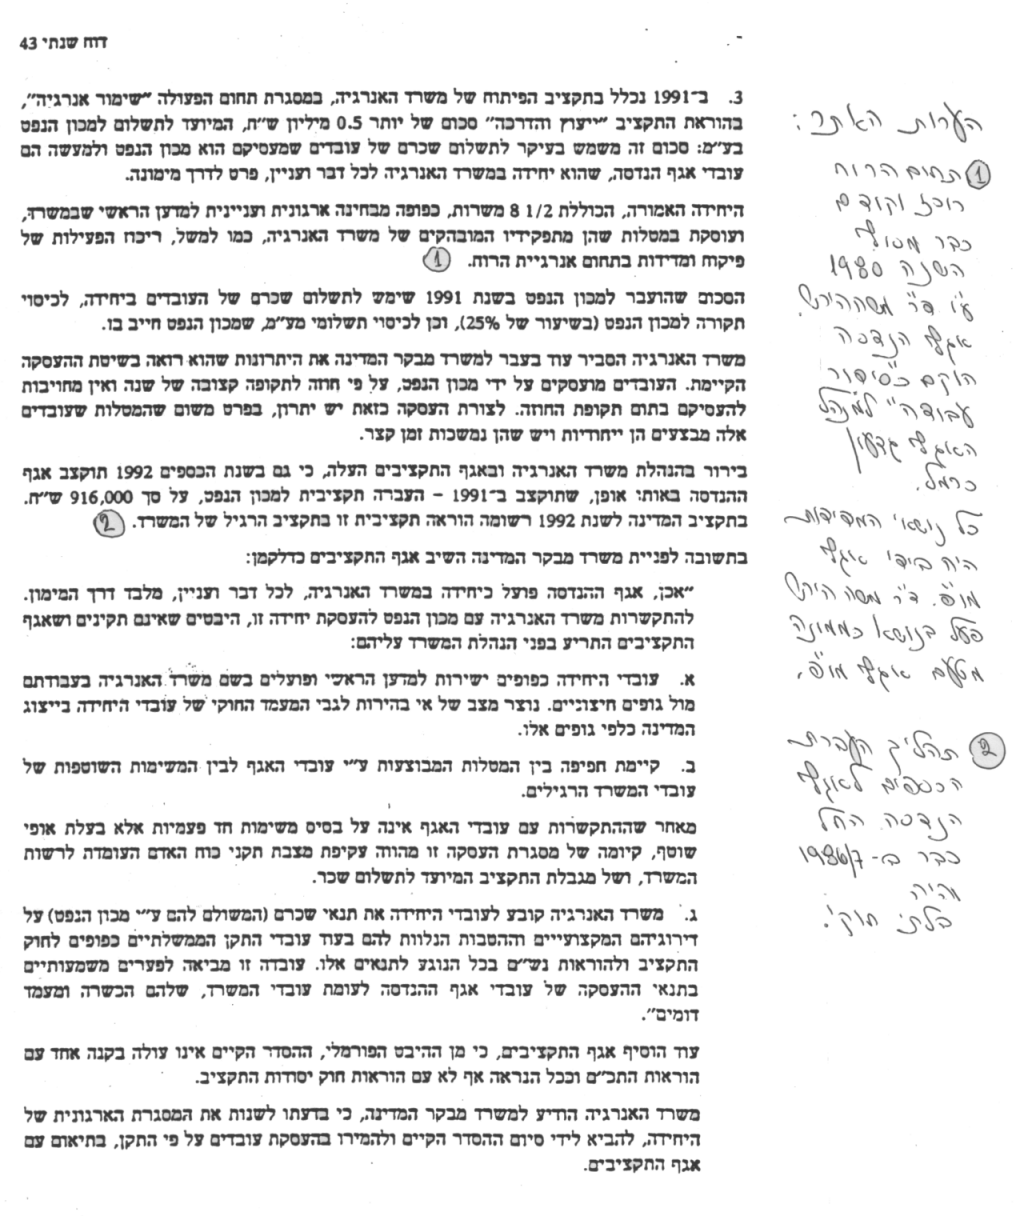 דוח שנתי 43
3. ב־1991 נכלל בתקציב הפיתוח של משרד האנרגיה, במסגרת תחום הפעולה "שימור אנרגיה",
בהוראת התקציב "ייעוץ והדרכה" סכום של יותר 0.5 מיליון ש"ח, המיועד לתשלום למכון הנפט
בע"מ: סכום זה משמש בעיקר לתשלום שכרם של עובדים שמעסיקם הוא מכון הנפט ולמעשה הם
עובדי אגף הנדסה, שהוא יחידה במשרד האנרגיה לכל דבר ועניין, פרט לדרך מימונה.
היחידה האמורה, הכוללת 8 1/2 משרות, כפופה מבחינה ארגונית ועניינית למדען הראשי שבמשרד,
ועוסקת במטלות שהן מתפקידיו המובהקים של משרד האנרגיה, כמו למשל, ריכוז הפעילות של
פיקוח ומדידות בתחום אנרגיית הרוח. 1
הסכום שהועבר למכון הנפט בשנת 1991 שימש לתשלום שכרם של העובדים ביחידה, לכיסוי
תקורה למכון הנפט (בשיעור של 25%), וכן לכיסוי תשלומי מע"מ, שמכון הנפט חייב בו.
משרד האנרגיה הסביר עוד בעבר למשרד מבקר המדינה את היתרונות שהוא רואה בשיטת ההעסקה
הקיימת. העובדים מועסקים על ידי מכון הנפט, על פי חוזה לתקופה קצובה של שנה ואין מחויבות
להעסיקם בתום תקופת החוזה. לצורת העסקה כזאת יש יתרון, בפרט משום שהמטלות שעובדים
אלה מבצעים הן ייחודיות ויש שהן נמשכות זמן קצר.
בירור בהנהלת משרד האנרגיה ובאגף התקציבים העלה, כי גם בשנת הכספים 1992 תוקצב אגף
ההנדסה באותו אופן, שתוקצב ב־1991 - העברה תקציבית למכון הנפט, על סך 916,000 ש"ח.
בתקציב המדינה לשנת 1992 רשומה הוראה תקציבית זו בתקציב הרגיל של המשרד. 2
בתשובה לפניית משרד מבקר המדינה השיב אגף התקציבים כדלקמן:
"אכן, אגף ההנדסה פועל כיחידה במשרד האנרגיה, לכל דבר ועניין, מלבד דרך המימון.
להתקשרות משרד האנרגיה עם מכון הנפט להעסקת יחידה זו, היבטים שאינם תקינים ושאגף
התקציבים התריע בפני הנהלת המשרד עליהם:
א. עובדי היחידה כפופים ישירות למדען הראשי ופועלים בשם משרד האנרגיה בעבודתם
מול גופים חיצוניים. נוצר מצב של אי בהירות לגבי המעמד החוקי של עובדי היחידה בייצוג
המדינה כלפי גופים אלו.
ב. קיימת חפיפה בין המטלות המבוצעות ע"י עובדי האגף לבין המשימות השוטפות של
עובדי המשרד הרגילים.
מאחר שההתקשרות עם עובדי האגף אינה על בסיס משימות חד פעמיות אלא בעלת אופי
שוטף, קיומה של מסגרת העסקה זו מהווה עקיפת מצבת תקני כוח האדם העומדת לרשות
המשרד, ושל מגבלת התקציב המיועד לתשלום שכר.
ג. משרד האנרגיה קובע לעובדי היחידה את תנאי שכרם (המשולם להם ע"י מכון הנפט) על
דירוגיהם המקצועייים וההטבות הנלוות להם בעוד עובדי התקן הממשלתיים כפופים לחוק
התקציב ולהוראות נש"ם בכל הנוגע לתנאים אלו. עובדה זו מביאה לפערים משמעותיים
בתנאי ההעסקה של עובדי אגף ההנדסה לעומת עובדי המשרד, שלהם הכשרה ומעמד
דומים".
עוד הוסיף אגף התקציבים, כי מן ההיבט הפורמלי, ההסדר הקיים אינו עולה בקנה אחד עם
הוראות התכ"ם וככל הנראה אף לא עם הוראות חוק יסודות התקציב.
משרד האנרגיה הודיע למשרד מבקר המדינה, כי בדעתו לשנות את המסגרת הארגונית של
היחידה, להביא לידי סיום ההסדר הקיים ולהמירו בהעסקת עובדים על פי התקן, בתיאום עם
אגף התקציבים.
הערות האתר:
1 תחום הרוח
רוכז וקודם
כבר מסוף
השנה 1980
ע"י ד"ר משה הירש
אגף הנדסה
הוקם כ"סידור
עבודה" למנהל
האגף גדעון
כרמל.
כל נושאי המדידות
היה בידי אגף
מו"פ. ד"ר משה הירש
פעל בנושא כממונה
מטעם אגף מו"פ.
2 תהליך העברת
הכספים לאגף
הנדסה החל
כבר ב- 1986/7
והיה
בלתי חוקי!